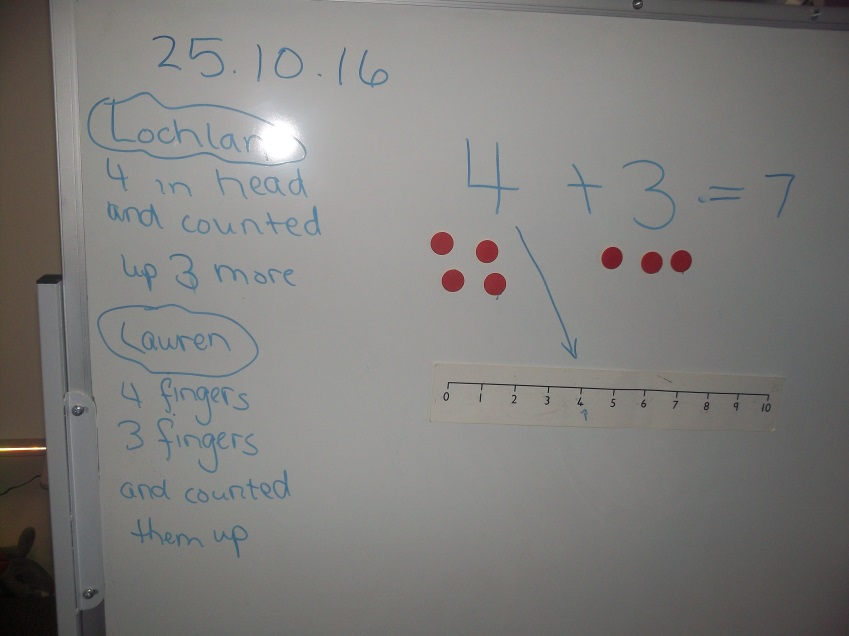 25.10.16
Lochlan
4 in head
and counted
up 3 more
Lauren
4 fingers
3 fingers
and counted
them up
4 + 3 = 7
0 1 2 3 4 5 6 7 8 9 10